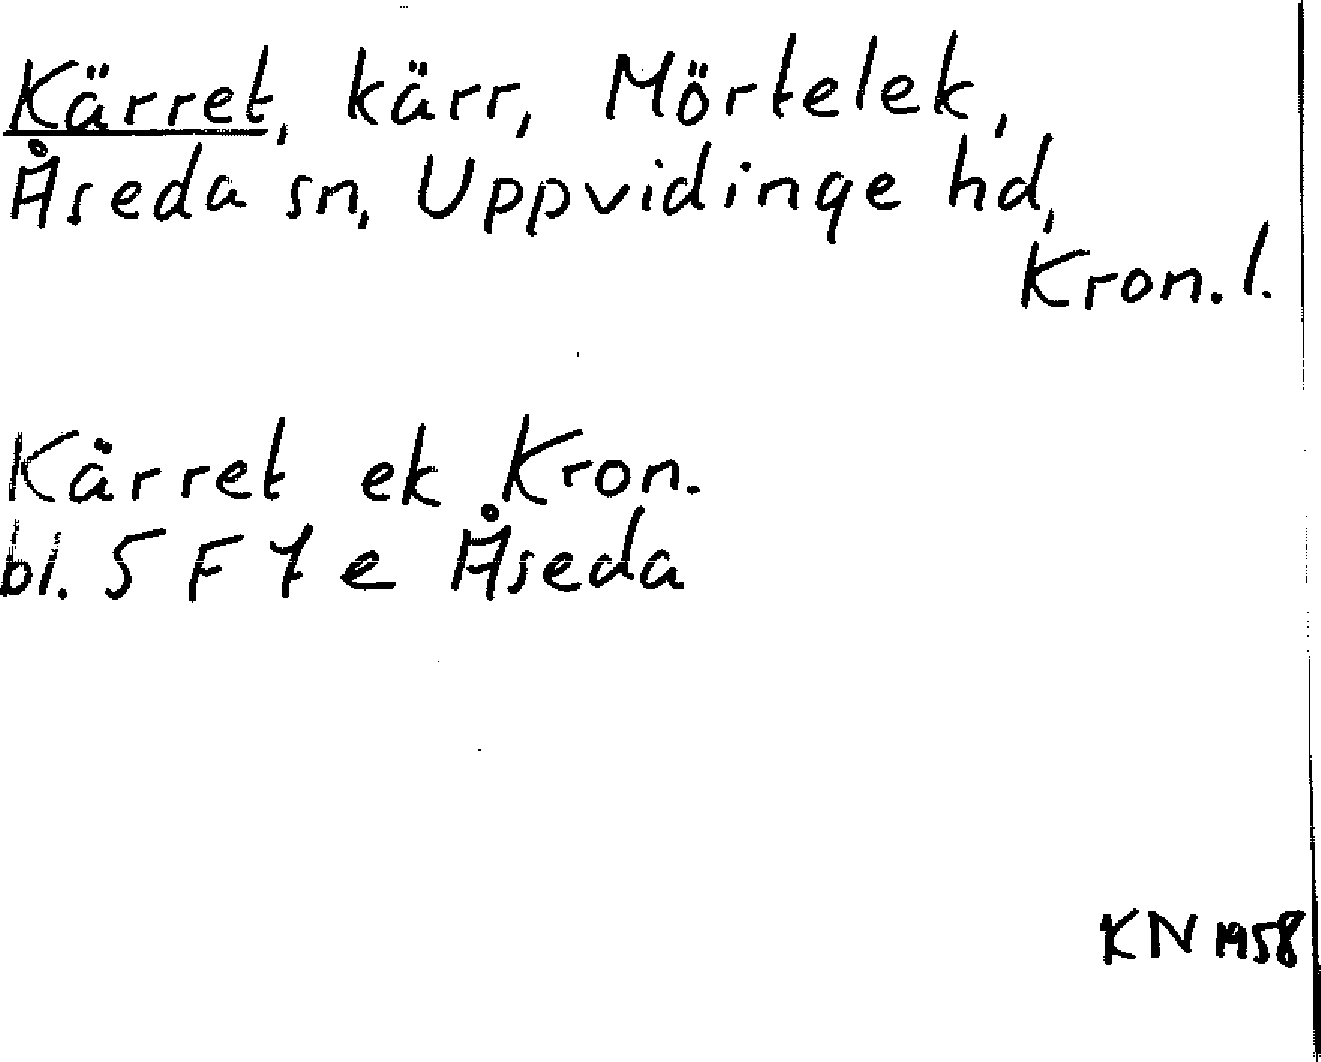 Kärret, kärr, Mörtelek,
Åseda sn, Uppvidinge hd,
Kron. l.
Kärret ek Kron.
bl. 5 F 7 e Åseda
KN 1958